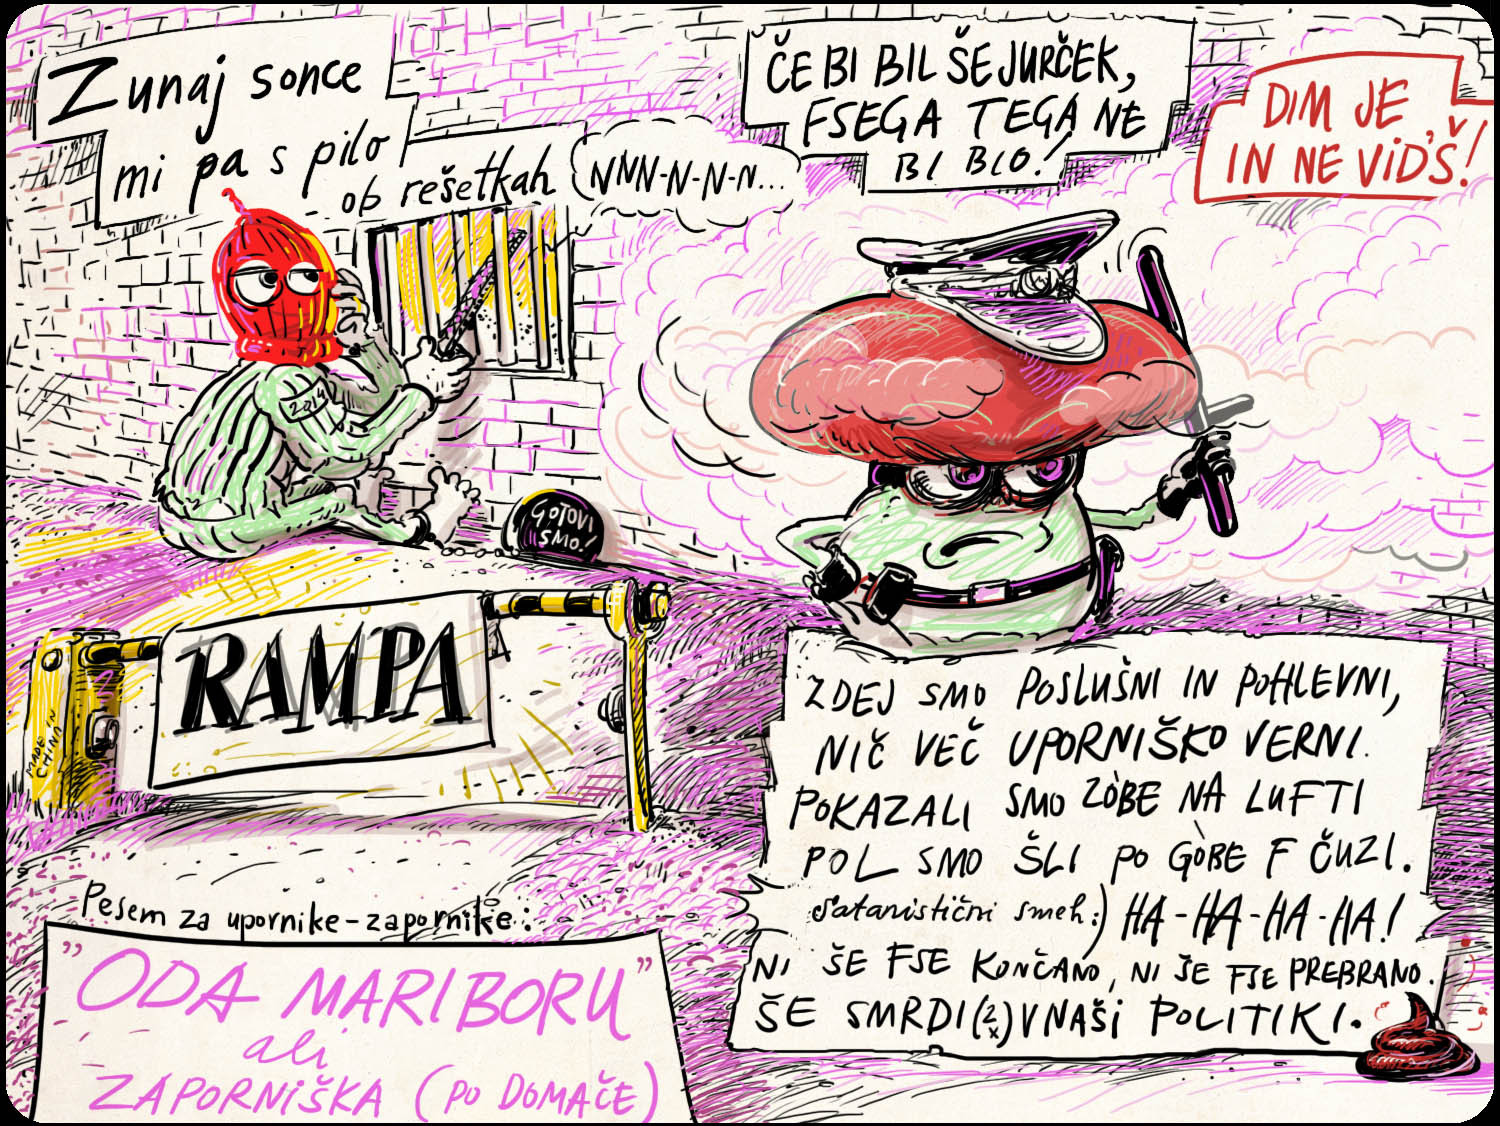 Zunaj sonce
mi pa s pilo
ob rešetkah
NNN-N-N-N...
ČE BI BIL ŠE JURČEK,
FSEGA TEGA NE
BI BLO!
DIM JE,
IN NE VID'Š!
2014
GOTOVI
SMO!
RAMPA
MADE IN
CHINA
Pesem za upornike-zapornike:
"ODA MARIBORU"
ali
ZAPORNIŠKA (PO DOMAČE)
ZDEJ SMO POSLUŠNI IN POHLEVNI,
NIČ VEČ UPORNIŠKO VERNI.
POKAZALI SMO ZOBE NA LUFTI
POL SMO ŠLI PO GOBE F ČUZI.
satanistični smeh:) HA-HA-HA-HA!
NI ŠE FSE KONČANO, NI ŠE FSE PREBRANO.
ŠE SMRDI (2x) V NAŠI POLITIKI.